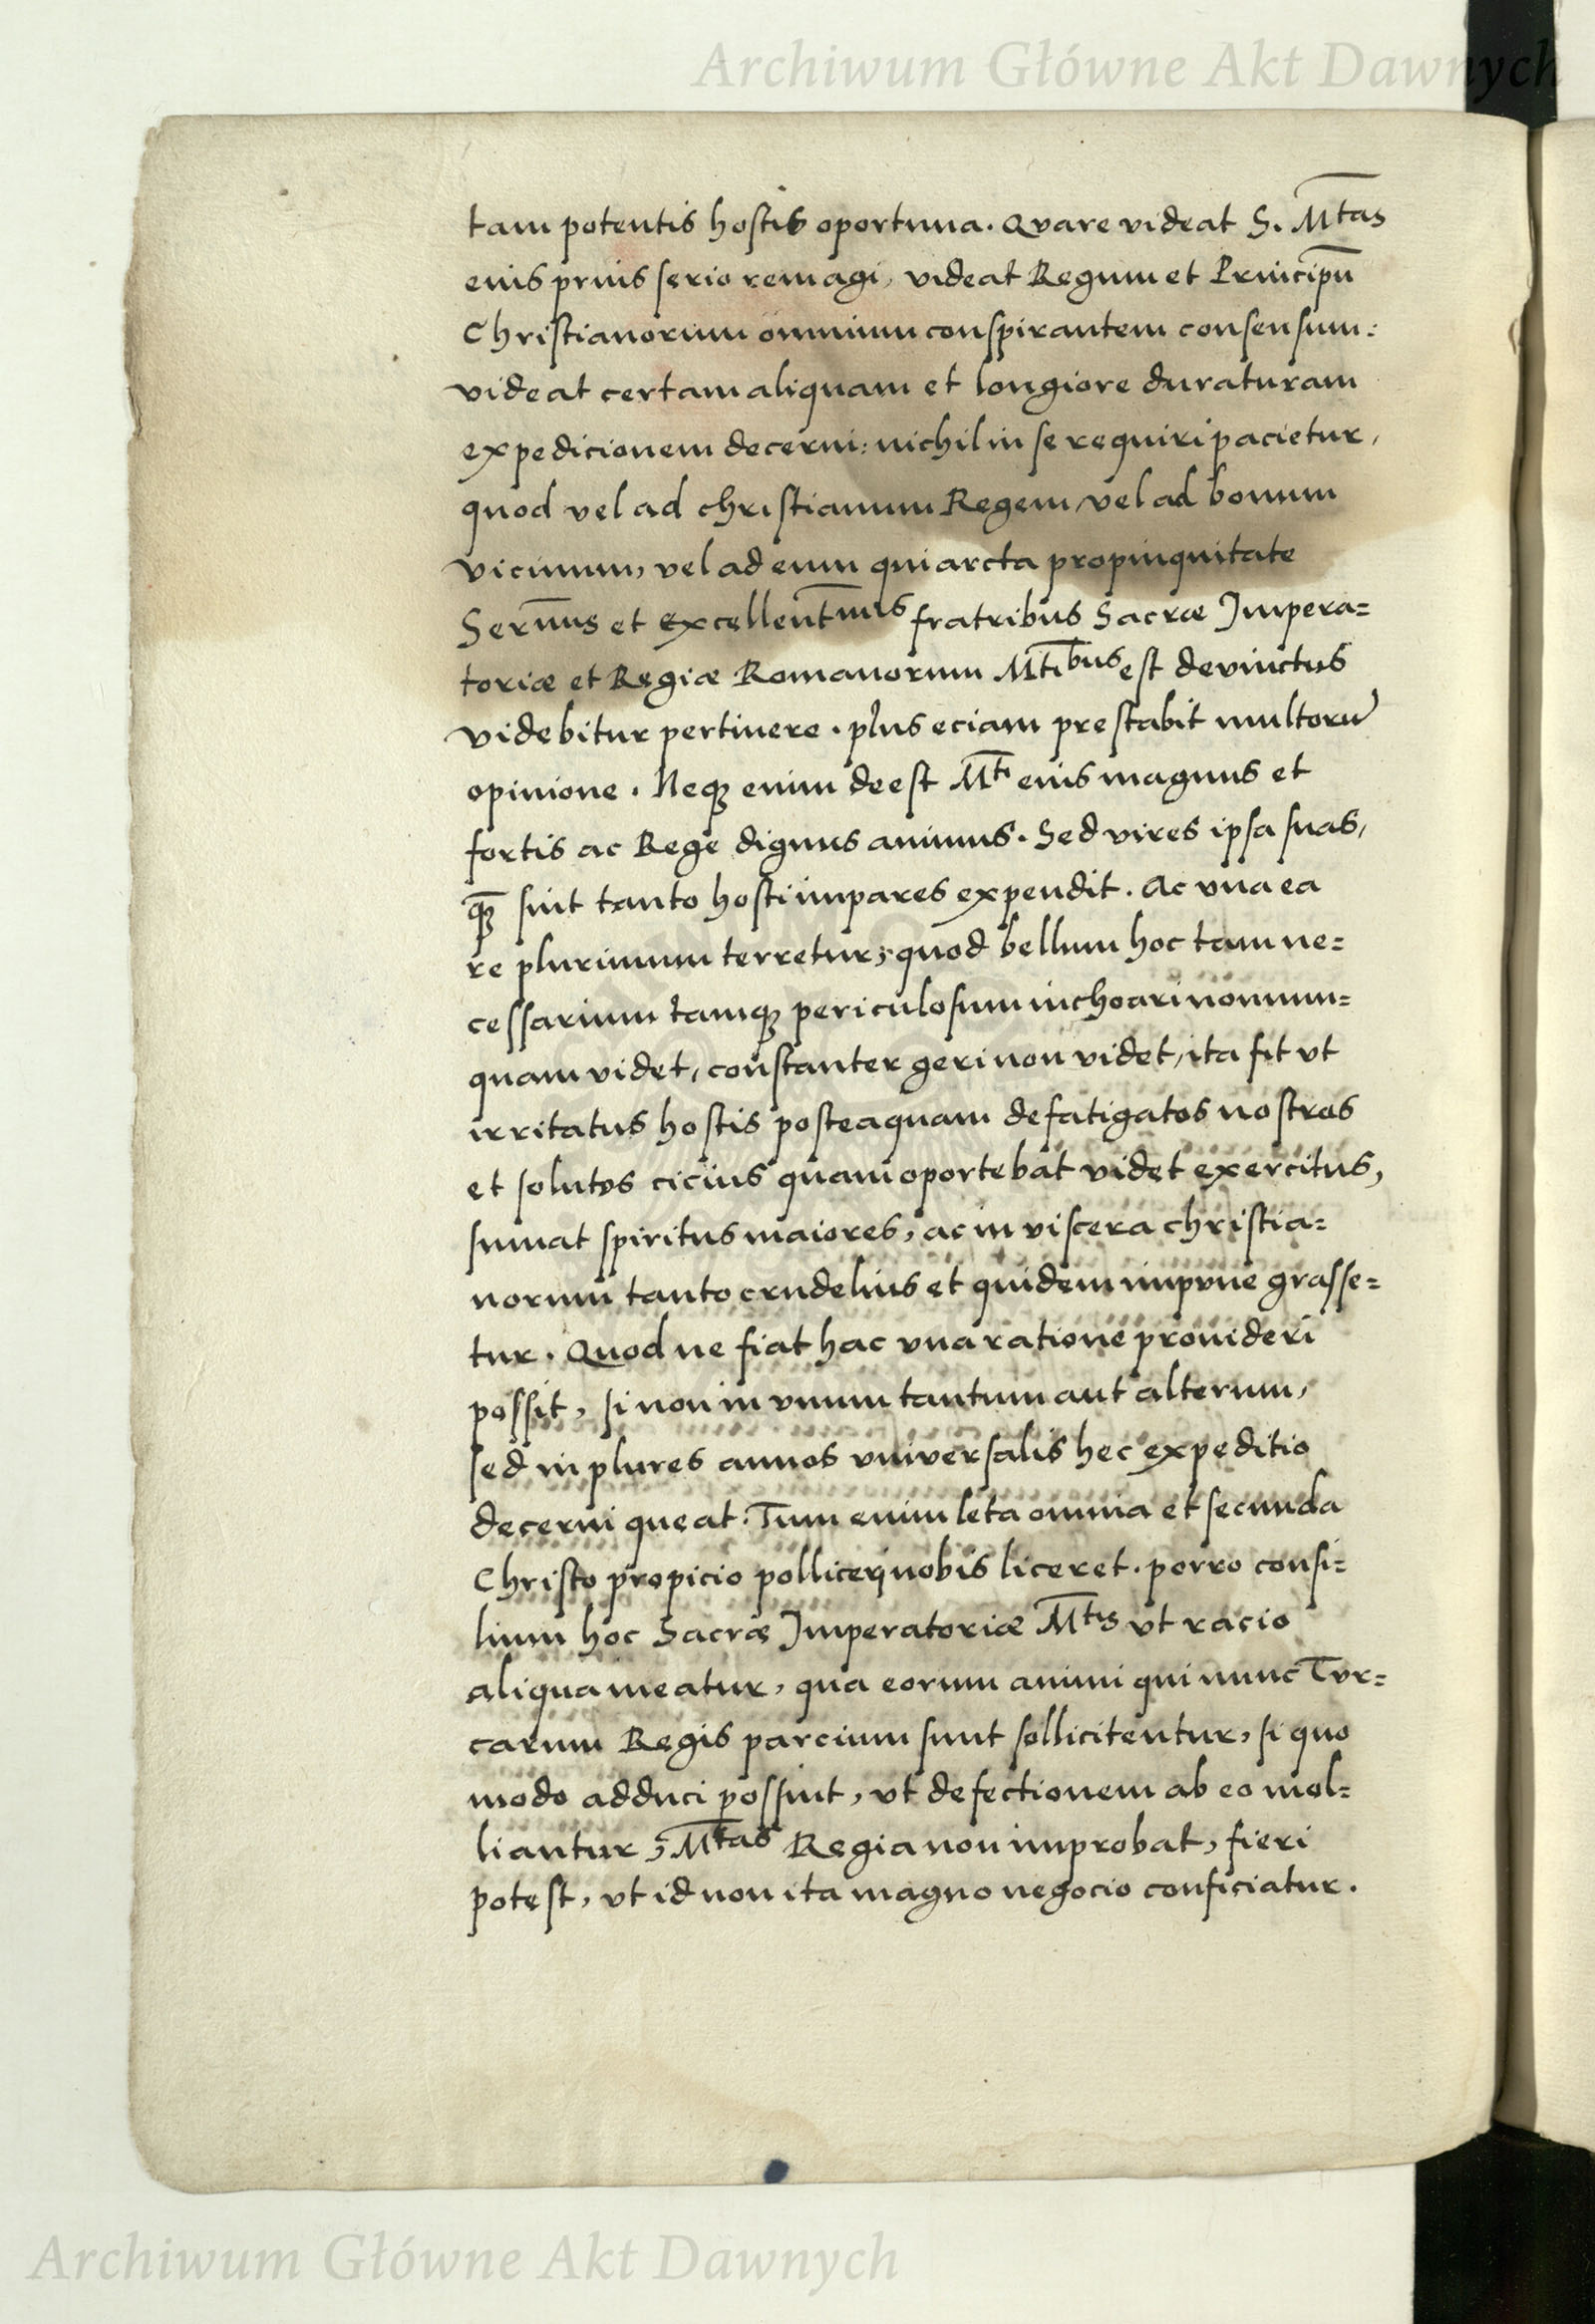 Archiwum Główne Akt Dawnych
tam potentis hostis oportuna. Quare videat S. Mtas
eius prius serio rem agi, videat Regum et Principu͞
Christianorum omnium conspirantem consensum:
videat certam aliquam et longiore duraturam
expedicionem decerni: nichil in se requiri pacietur,
quod vel ad christianum Regem, vel ad bonum
vicinum, vel ad eum qui arcta propinquitate
Ser͞mis et excellent͞mis fratribus Sacræ Impera=
toriæ et Regiæ Romanorum Mtibus est devinctus
videbitur pertinere. plus eciam prestabit multoru͞
opinione. Neqꝫ enim deest Mti eius magnus et
fortis ac Rege dignus animus. Sed vires ipsa suas,
qꝫ͞ sint tanto hosti impares expendit. Ac vna ea
re plurimum terretur; quod bellum hoc tam ne=
cessarium tamqꝫ periculosum inchoari nonnun=
quam videt, constanter geri non videt, ita fit vt
irritatus hostis posteaquam defatigatos nostros
et solutos cicius quam oportebat videt exercitus,
sumat spiritus maiores, ac in viscera christia=
norum tanto crudelius et quidem impune grasse=
tur. Quod ne fiat hac vna ratione prouideri
possit, si non in vnum tantum aut alterum,
sed in plures annos vniversalis hec expeditio
decerni queat. Tum enim leta omnia et secunda
Christo propicio pollicerj nobis liceret. porro consi=
lium hoc Sacræ Imperatoriæ Mtis vt racio
aliqua ineatur, qua eorum animi qui nunc Tur=
carum Regis parcium sunt sollicitentur, si quo
modo adduci possint, vt defectionem ab eo mol=
liantur; Mtas Regia non improbat, fieri
potest, vt id non ita magno negocio conficiatur.
Archiwum Główne Akt Dawnych